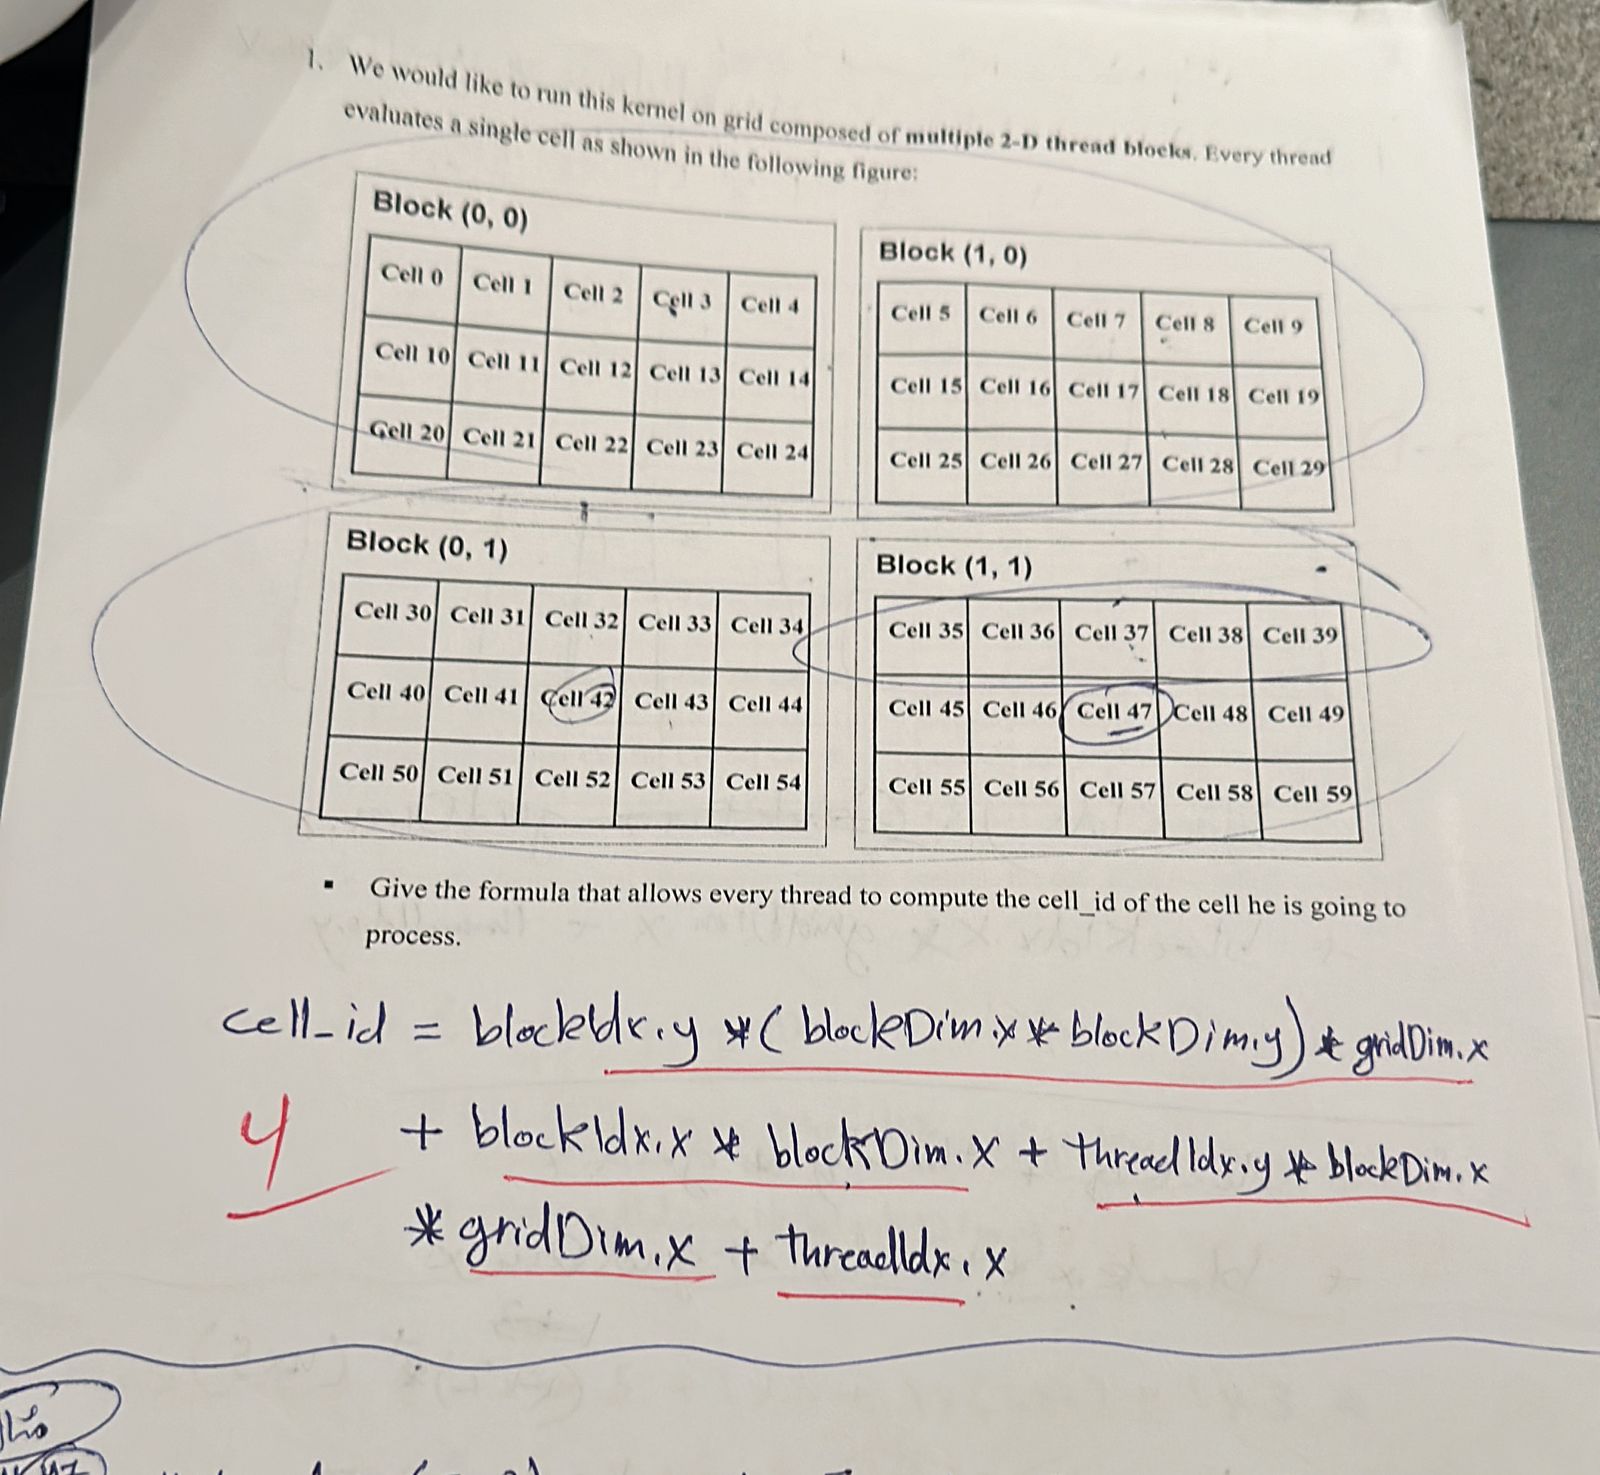 1. We would like to run this kernel on grid composed of multiple 2-D thread blocks. Every thread
evaluates a single cell as shown in the following figure:
Block (0, 0)
Cell 0 Cell 1 Cell 2 Cell 3 Cell 4
Cell 10 Cell 11 Cell 12 Cell 13 Cell 14
Cell 20 Cell 21 Cell 22 Cell 23 Cell 24
Block (1, 0)
Cell 5 Cell 6 Cell 7 Cell 8 Cell 9
Cell 15 Cell 16 Cell 17 Cell 18 Cell 19
Cell 25 Cell 26 Cell 27 Cell 28 Cell 29
Block (0, 1)
Cell 30 Cell 31 Cell 32 Cell 33 Cell 34
Cell 40 Cell 41 Cell 42 Cell 43 Cell 44
Cell 50 Cell 51 Cell 52 Cell 53 Cell 54
Block (1, 1)
Cell 35 Cell 36 Cell 37 Cell 38 Cell 39
Cell 45 Cell 46 Cell 47 Cell 48 Cell 49
Cell 55 Cell 56 Cell 57 Cell 58 Cell 59
▪ Give the formula that allows every thread to compute the cell_id of the cell he is going to
process.
cell_id = blockIdx.y *( blockDim.x * blockDim.y) * gridDim.x
4 + blockIdx.x * blockDim.x + threadIdx.y * blockDim.x
* gridDim.x + threadIdx.x